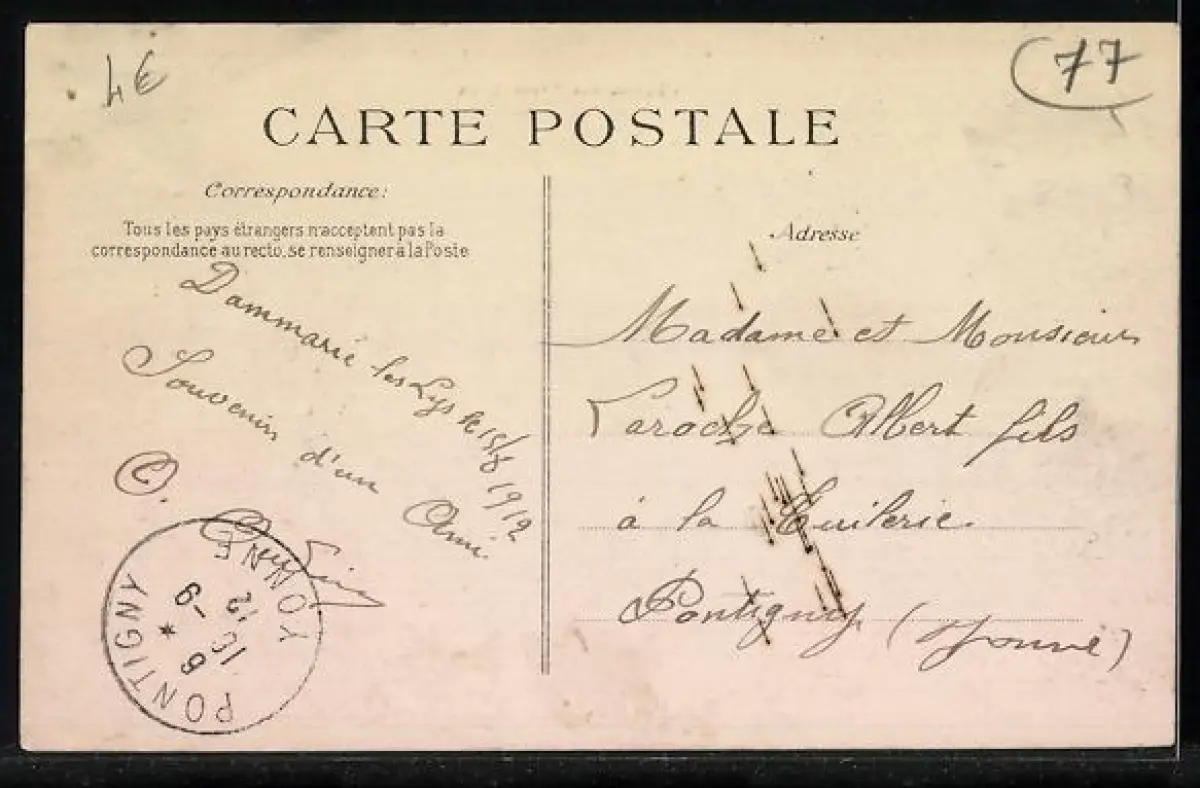 4€
77
CARTE POSTALE
Correspondance:
Tous les pays étrangers n'acceptent pas la
correspondance au recto, se renseigner à la Poste
Dammarie les Lys le 15/8 1912
Souvenir d'un Ami
Adresse
Madame et Monsieur
Laroche Albert fils
à la Tuilerie
Pontigny (Yonne)
PONTIGNY
YONNE